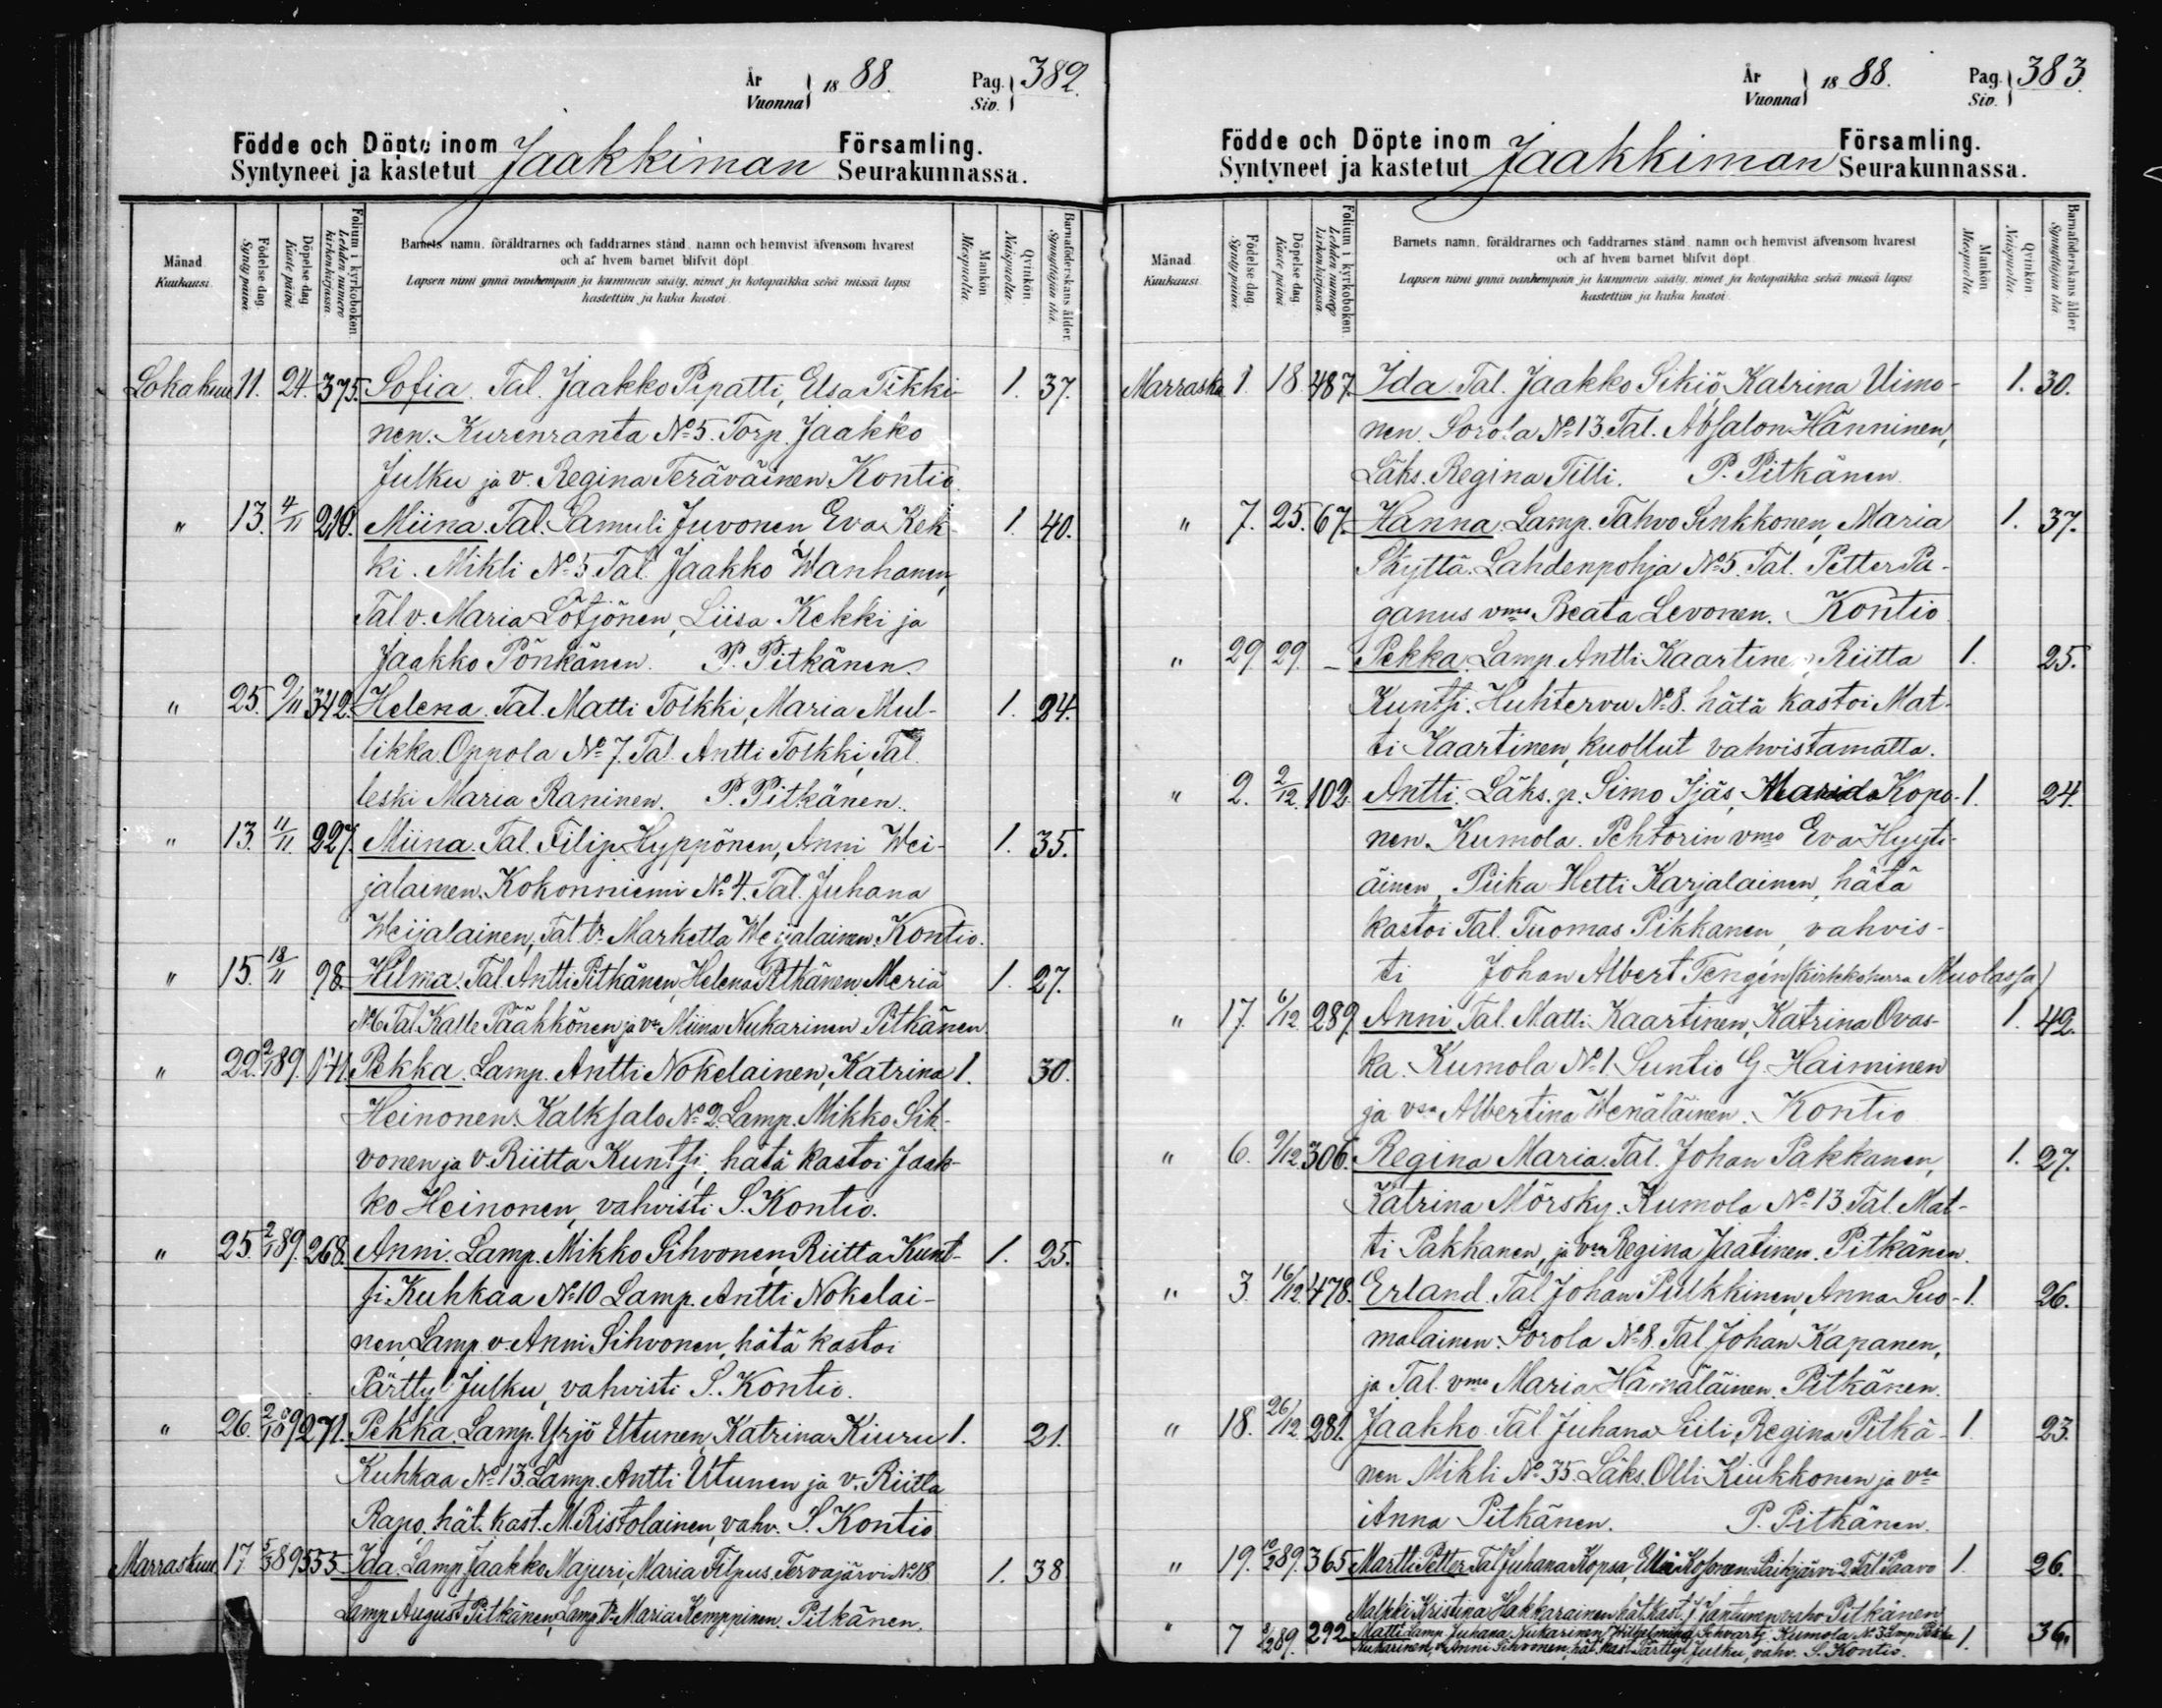 År
Vuonna } 18 88. Pag.
Siv. } 382.
Födde och Döpte inom Församling.
Syntyneet ja kastetut Jaakkiman Seurakunnassa.
Månad
Kuukausi.
Födelse dag.
Synty päivä.
Döpelse dag.
Kaste päivä.
Folium i kyrkoboken.
Lehden numero
kirkonkirjassa.
Barnets namn, föräldrarnes och faddrarnes stånd, namn och hemvist äfvensom hvarest
och af hvem barnet blifvit döpt.
Lapsen nimi ynnä vanhempain ja kummein sääty, nimet ja kotopaikka sekä missä lapsi
kastettiin ja kuka kastoi.
Mankön.
Miespuolia.
Qvinkön.
Naispuolia.
Barnaföderskans ålder.
Synnyttäjän ikä.
Lokakuu 11. 24. 375. Sofia. Tal. Jaakko Pipatti, Elsa Tikki- 1. 37.
nen. Kurenranta No 5. Torp. Jaakko
Julku ja v. Regina Teräväinen Kontio.
" 13. 4/11 210. Miina. Tal. Samuli Juvonen, Eva Kek- 1. 40.
ki. Mikli No 5 Tal. Jaakko Wanhanen,
Tal v. Maria Lötjönen, Liisa Kekki ja
Jaakko Pönkänen. P. Pitkänen.
" 25. 9/11 342. Helena. Tal. Matti Tolkki, Maria Mul- 1. 24.
likka. Oppola No 7. Tal. Antti Tolkki, Tal.
leski Maria Raninen. P. Pitkänen.
" 13. 11/11 227. Miina. Tal. Filip Hyppönen, Anni Wei- 1. 35.
jalainen. Kokonniemi No 4. Tal. Juhana
Weijalainen, Tal. tr Marketta Weijalainen Kontio.
" 15. 18/11 98. Hilma. Tal. Antti Pitkänen, Helena Pitkänen. Meriä 1. 27.
No 6 Tal. Kalle Pääkkönen ja vr Miina Nukarinen Pitkänen.
" 22. 2/1 89. 141. Pekka. Lamp. Antti Nokelainen, Katrina 1. 30.
Heinonen. Kalksalo No 2. Lamp. Mikko Sih-
vonen ja v. Riitta Kuntsi, hätä kastoi Jaak-
ko Heinonen, vahvisti S. Kontio.
" 25. 2/1 89. 268. Anni. Lamp. Mikko Sihvonen, Riitta Kunt- 1. 25.
si. Kuhkaa No 10 Lamp. Antti Nokelai-
nen, Lamp. v. Anni Sihvonen, hätä kastoi
Pärttyl Julku, vahvisti S. Kontio.
" 26. 2/1 89 271. Pekka. Lamp. Yrjö Utunen, Katrina Kiuru 1. 21.
Kuhkaa No 13. Lamp. Antti Utunen ja v. Riitta
Rapo, hät. kast. M. Ristolainen, vahv. S. Kontio
Marraskuu 17 5/3 89 555 Ida. Lamp. Jaakko Majuri, Maria Filpus. Tervajärvi No 18 1. 38
Lamp. August Pitkänen, Lamp. tr Maria Kemppinen. Pitkänen.
År
Vuonna } 18 88. Pag.
Siv. } 383.
Födde och Döpte inom Församling.
Syntyneet ja kastetut Jaakkiman Seurakunnassa.
Månad
Kuukausi.
Födelse dag.
Synty päivä.
Döpelse dag.
Kaste päivä.
Folium i kyrkoboken.
Lehden numero
kirkonkirjassa.
Barnets namn, föräldrarnes och faddrarnes stånd, namn och hemvist äfvensom hvarest
och af hvem barnet blifvit döpt.
Lapsen nimi ynnä vanhempain ja kummein sääty, nimet ja kotopaikka sekä missä lapsi
kastettiin ja kuka kastoi.
Mankön
Miespuolia
Qvinkön.
Naispuolia.
Barnaföderskans ålder
Synnyttäjän ikä.
Marrasku 1. 18. 487. Ida. Tal. Jaakko Sikiö, Katrina Uimo- 1. 30.
nen. Sorola No 13. Tal. Absalon Hänninen,
Läks. Regina Tilli. P. Pitkänen.
" 7. 25. 67. Hanna. Lamp. Tahvo Sinkkonen, Maria 1. 37.
Skyttä. Lahdenpohja No 5. Tal. Petter Pa-
ganus vmo Beata Levonen. Kontio
" 29. 29. – Pekka. Lamp. Antti Kaartinen, Riitta 1. 25.
Kuntsi. Huhtervu No 8. hätä kastoi Mat-
ti Kaartinen, kuollut vahvistamatta.
" 2. 2/12. 102. Antti. Läks. p. Simo Ijäs, Kopo- 1. 24.
nen. Kumola. Pehtorin vmo Eva Hyyti-
äinen, Piika Hetti Karjalainen, hätä
kastoi Tal. Tuomas Pikkanen, vahvis-
ti Johan Albert Tengén (Kirkkoherra Muolassa)
" 17. 6/12. 289. Anni Tal. Matti Kaartinen, Katrina Ovas- 1. 42.
ka. Kumola No 1 Suntio G. Haiminen
ja vsa Albertina Wenäläinen. Kontio
" 6. 9/12 306. Regina Maria. Tal. Johan Pakkanen, 1. 27.
Katrina Mörsky. Kumola No 13. Tal. Mat-
ti Pakkanen, ja vsa Regina Jaatinen. Pitkänen.
" 3. 16/12. 478. Erland. Tal Johan Pulkkinen, Anna Suo- 1. 26.
malainen. Sorola No 8. Tal. Johan Kapanen,
ja Tal. vmo Maria Hämäläinen. Pitkänen.
" 18. 26/12. 281. Jaakko. Tal. Juhana Siili, Regina Pitkä- 1. 23.
nen Mikli No 35. Läks. Olli Kiukkonen ja vsa
Anna Pitkänen. P. Pitkänen.
" 19. 10/2 89. 365 Martti Petter Tal Juhana Kopsa, Kosonen. Paikjärvi 2. Tal. Paavo 1. 26.
Malkki, Kristina Hakkarainen hät. kast. J. Jantunen vahv. Pitkänen
" 7 2/2 89. 292 Matti Lamp. Juhana Nukarinen, Wilhelmina Schvartz. Kumola No 3 Lamp. Pekka 1. 36.
Nukarinen, v. Anni Sihvonen, hät. kast. Pärttyl Julku, vahv. S. Kontio.